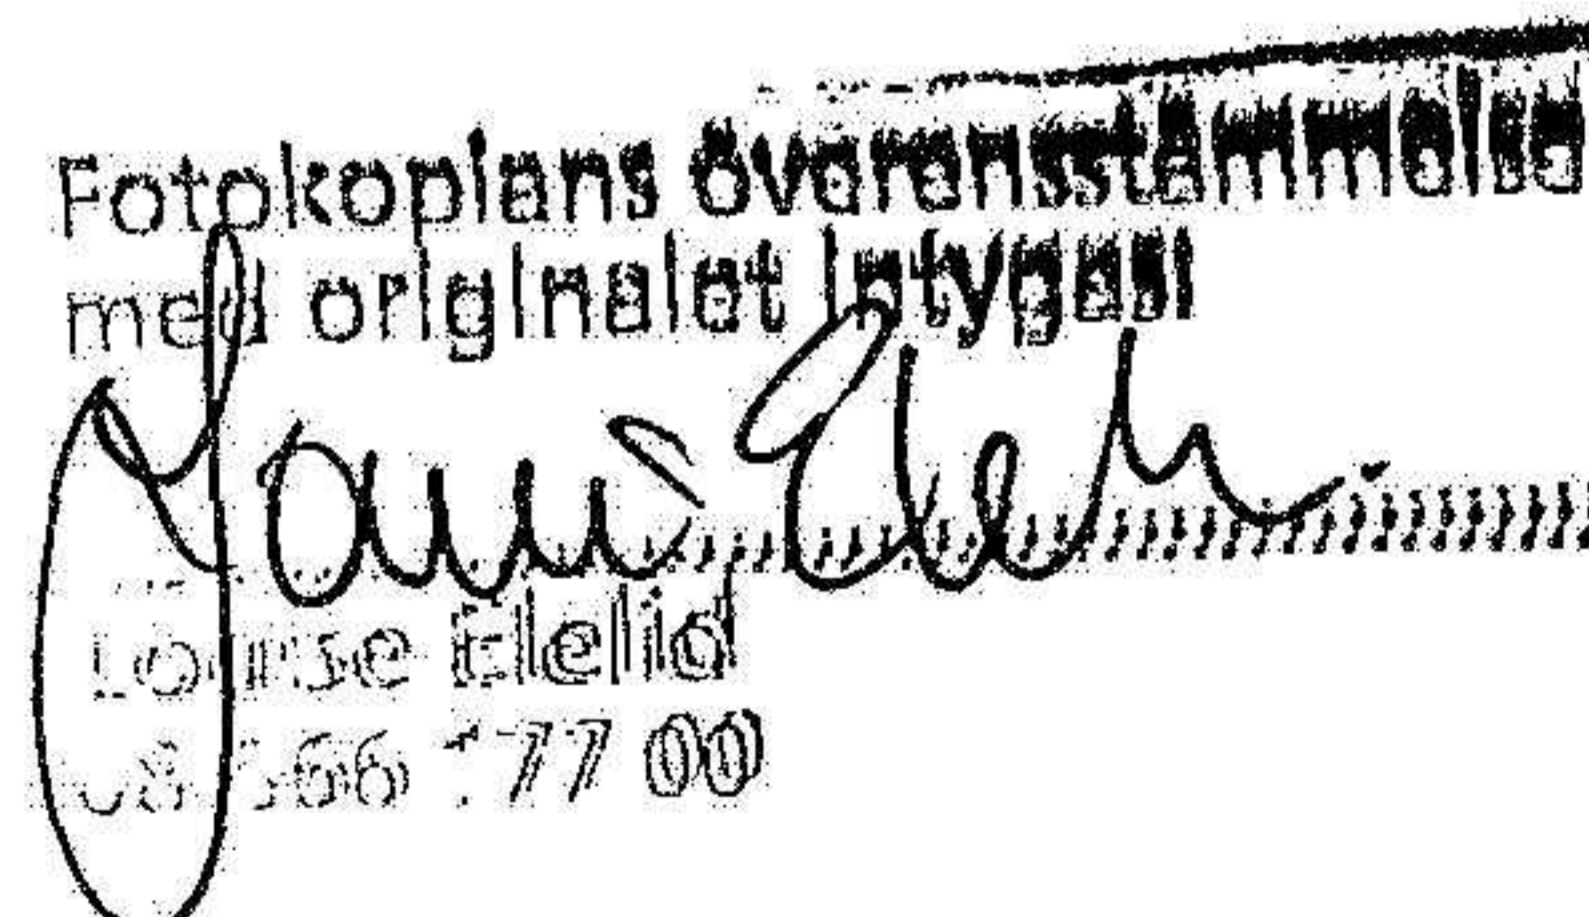 Fotokopians överensstämmelse
med originalet intygas:
Louise Elelid
08 566 177 00